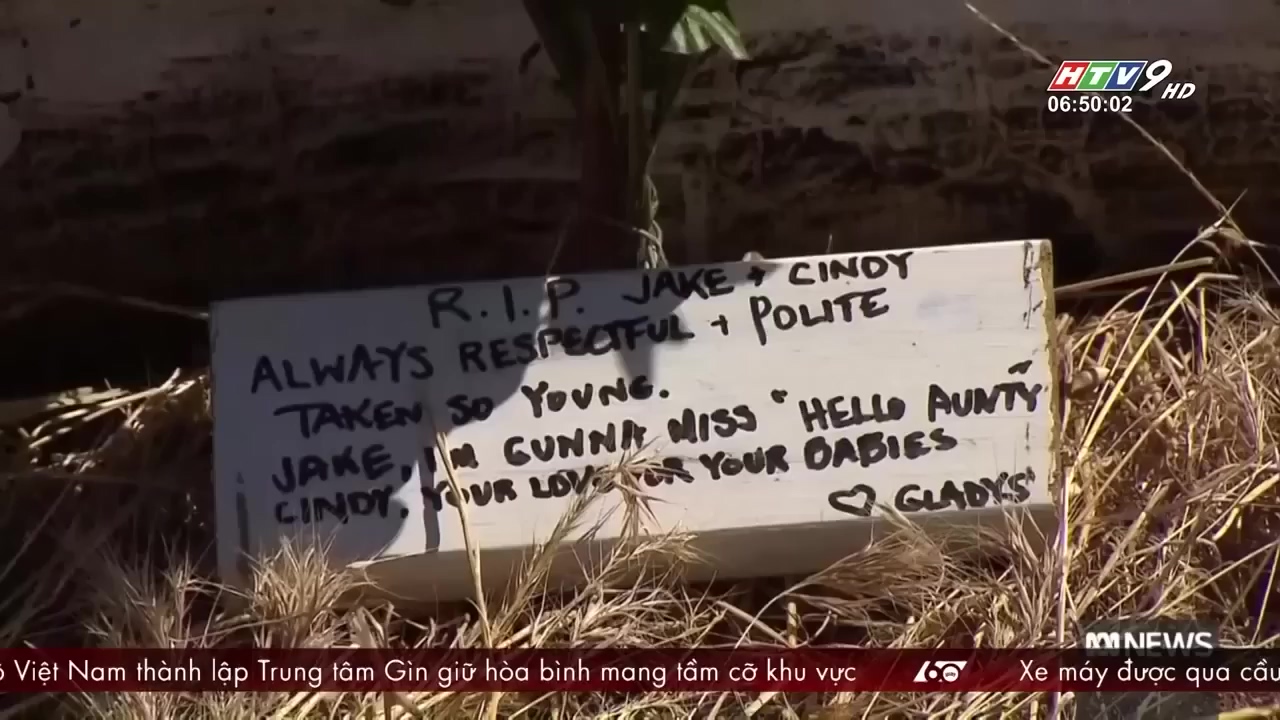 HTV9 HD
06:50:02
R.I.P. JAKE + CINDY
ALWAYS RESPECTFUL + POLITE
TAKEN SO YOUNG.
JAKE, I'M GUNNA MISS "HELLO AUNTY"
CINDY, YOUR LOVE FOR YOUR BABIES
♡ GLADYS
NEWS
Việt Nam thành lập Trung tâm Gìn giữ hòa bình mang tầm cỡ khu vực 60 Xe máy được qua cầu